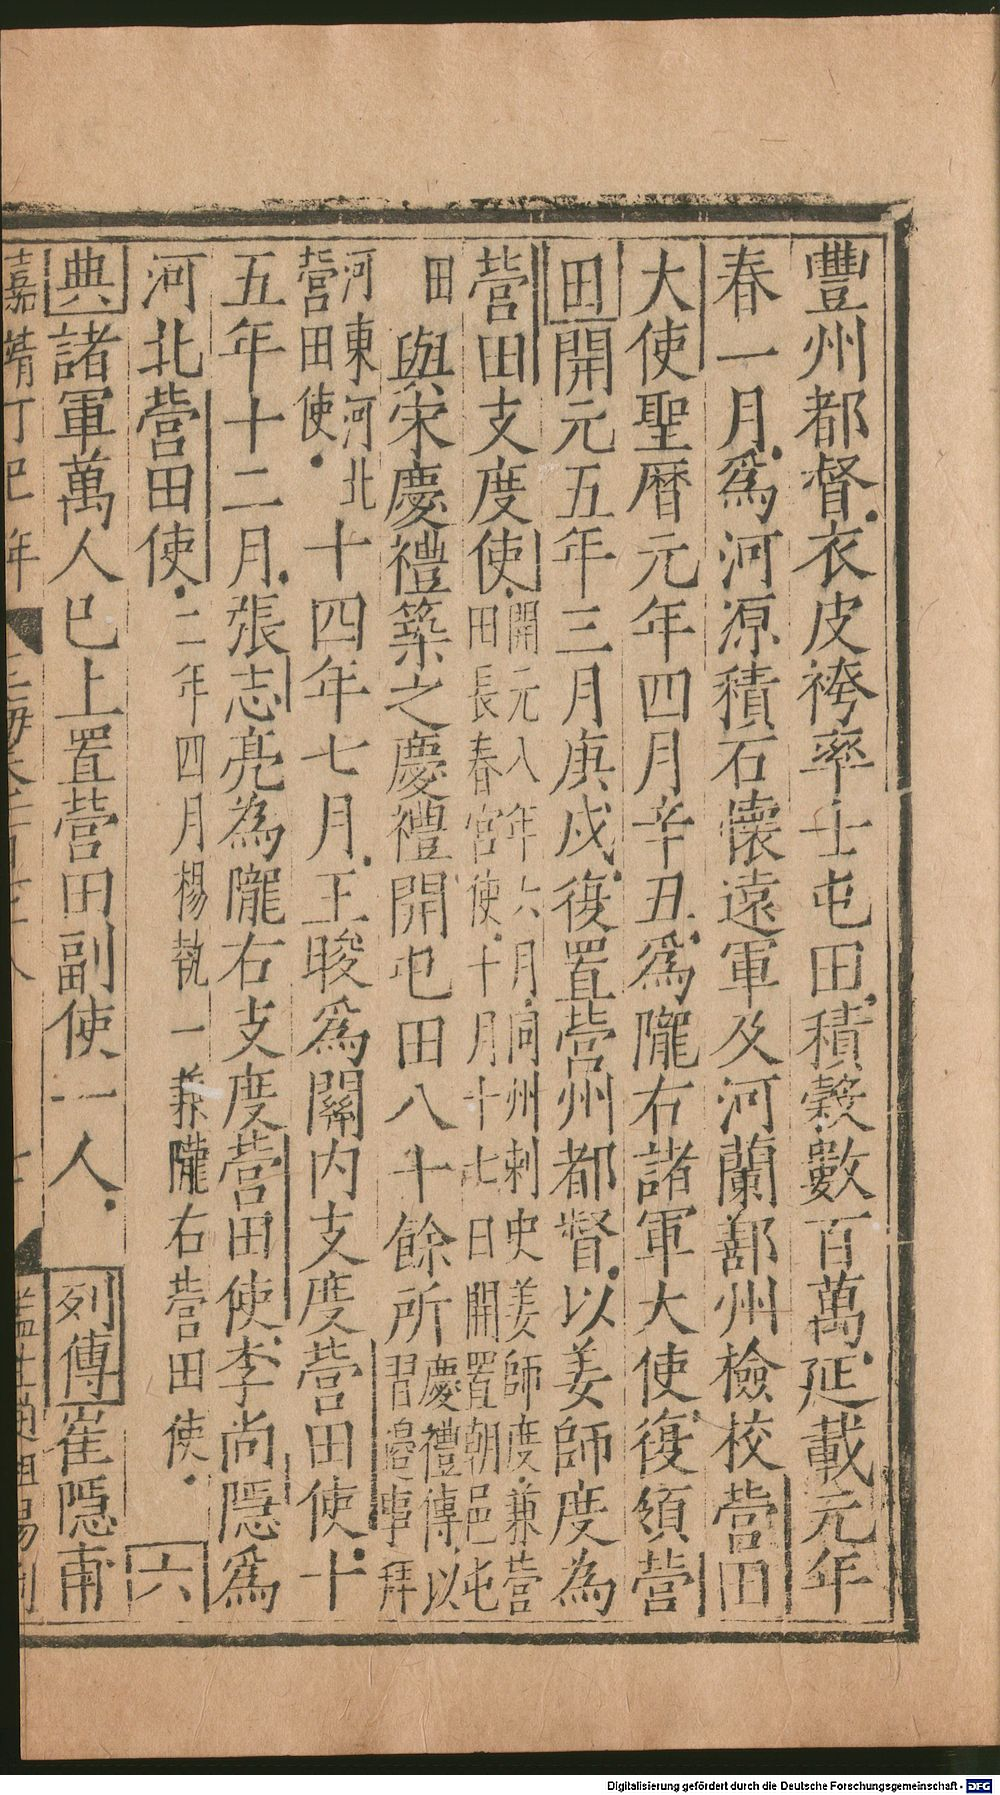 豐州都督衣皮袴率士屯田積糓數百萬延載元年
春一月爲河源積石懷遠軍及河蘭鄯州檢校營田
大使聖曆元年四月辛丑爲隴右諸軍大使復領營
田開元五年三月庚戌復置營州都督以姜師度為
營田支度使開元八年六月同州刺史姜師度兼營
田長春宮使十月十七日開置朝邑屯
田與宋慶禮築之慶禮開屯田八十餘所慶禮傳以
習邉事拜
河東河北
營田使十四年七月王晙爲關内支度營田使十
五年十二月張志亮為隴右支度營田使李尚隱爲
河北營田使二年四月楊執一兼隴右營田使六
典諸軍萬人巳上置營田副使一人列傳崔隱甫
嘉靖丁巳年
Digitalisierung gefördert durch die Deutsche Forschungsgemeinschaft - DFG